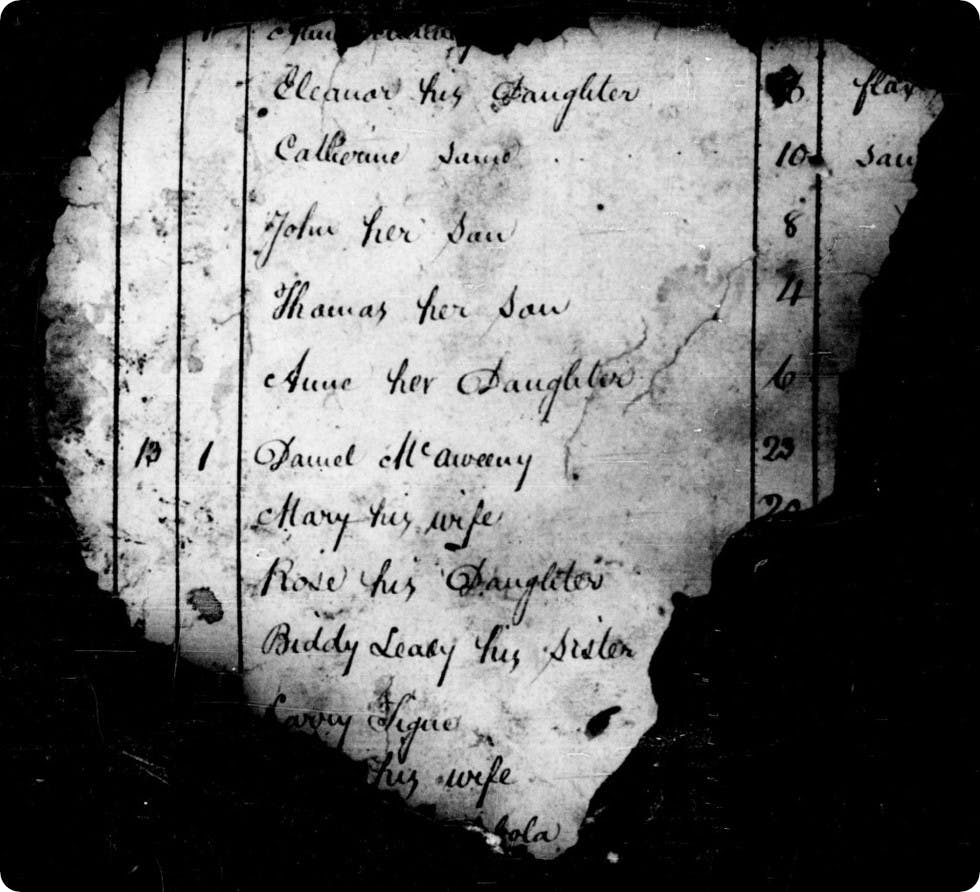 Eleanor his Daughter 16 flax
Catherine same 10 sam
John her son 8
Thomas her son 4
Anne her Daughter 6
13 1 Daniel McAweeny 23
Mary his wife 20
Rose his Daughter
Biddy Leavy his sister
Tigue
his wife